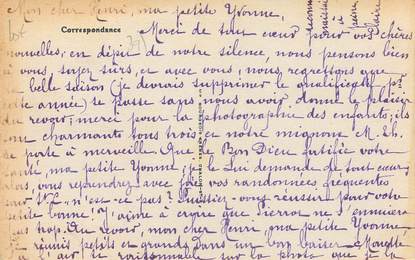 Mon cher Henri, ma petite Yvonne,
Correspondance
Merci de tout cœur pour vos chères
nouvelles; en dépit de notre silence, nous pensons bien
à vous soyez surs, et avec vous, nous regrettons que
belle saison (je devrais supprimer le qualificatif
cette année) se passe sans nous avoir donné le plaisir
du revoir; merci pour la photographie des enfants; ils
sont charmants tous trois et notre mignonne M.
se porte à merveille. Que le Bon Dieu fortifie votre
santé, ma petite Yvonne, je le Lui demande de tout cœur;
alors, vous reprendrez avec joie vos randonnées fréquentes
sur n'est-ce pas? Puissiez-vous réussir pour votre
petite bonne! J'aime à croire que Pierrot ne s'ennuiera
pas trop. Au revoir, mon cher Henri, ma petite Yvonne,
je réunis petits et grands dans un bon baiser
a l'air si raisonnable sur la photo que je la